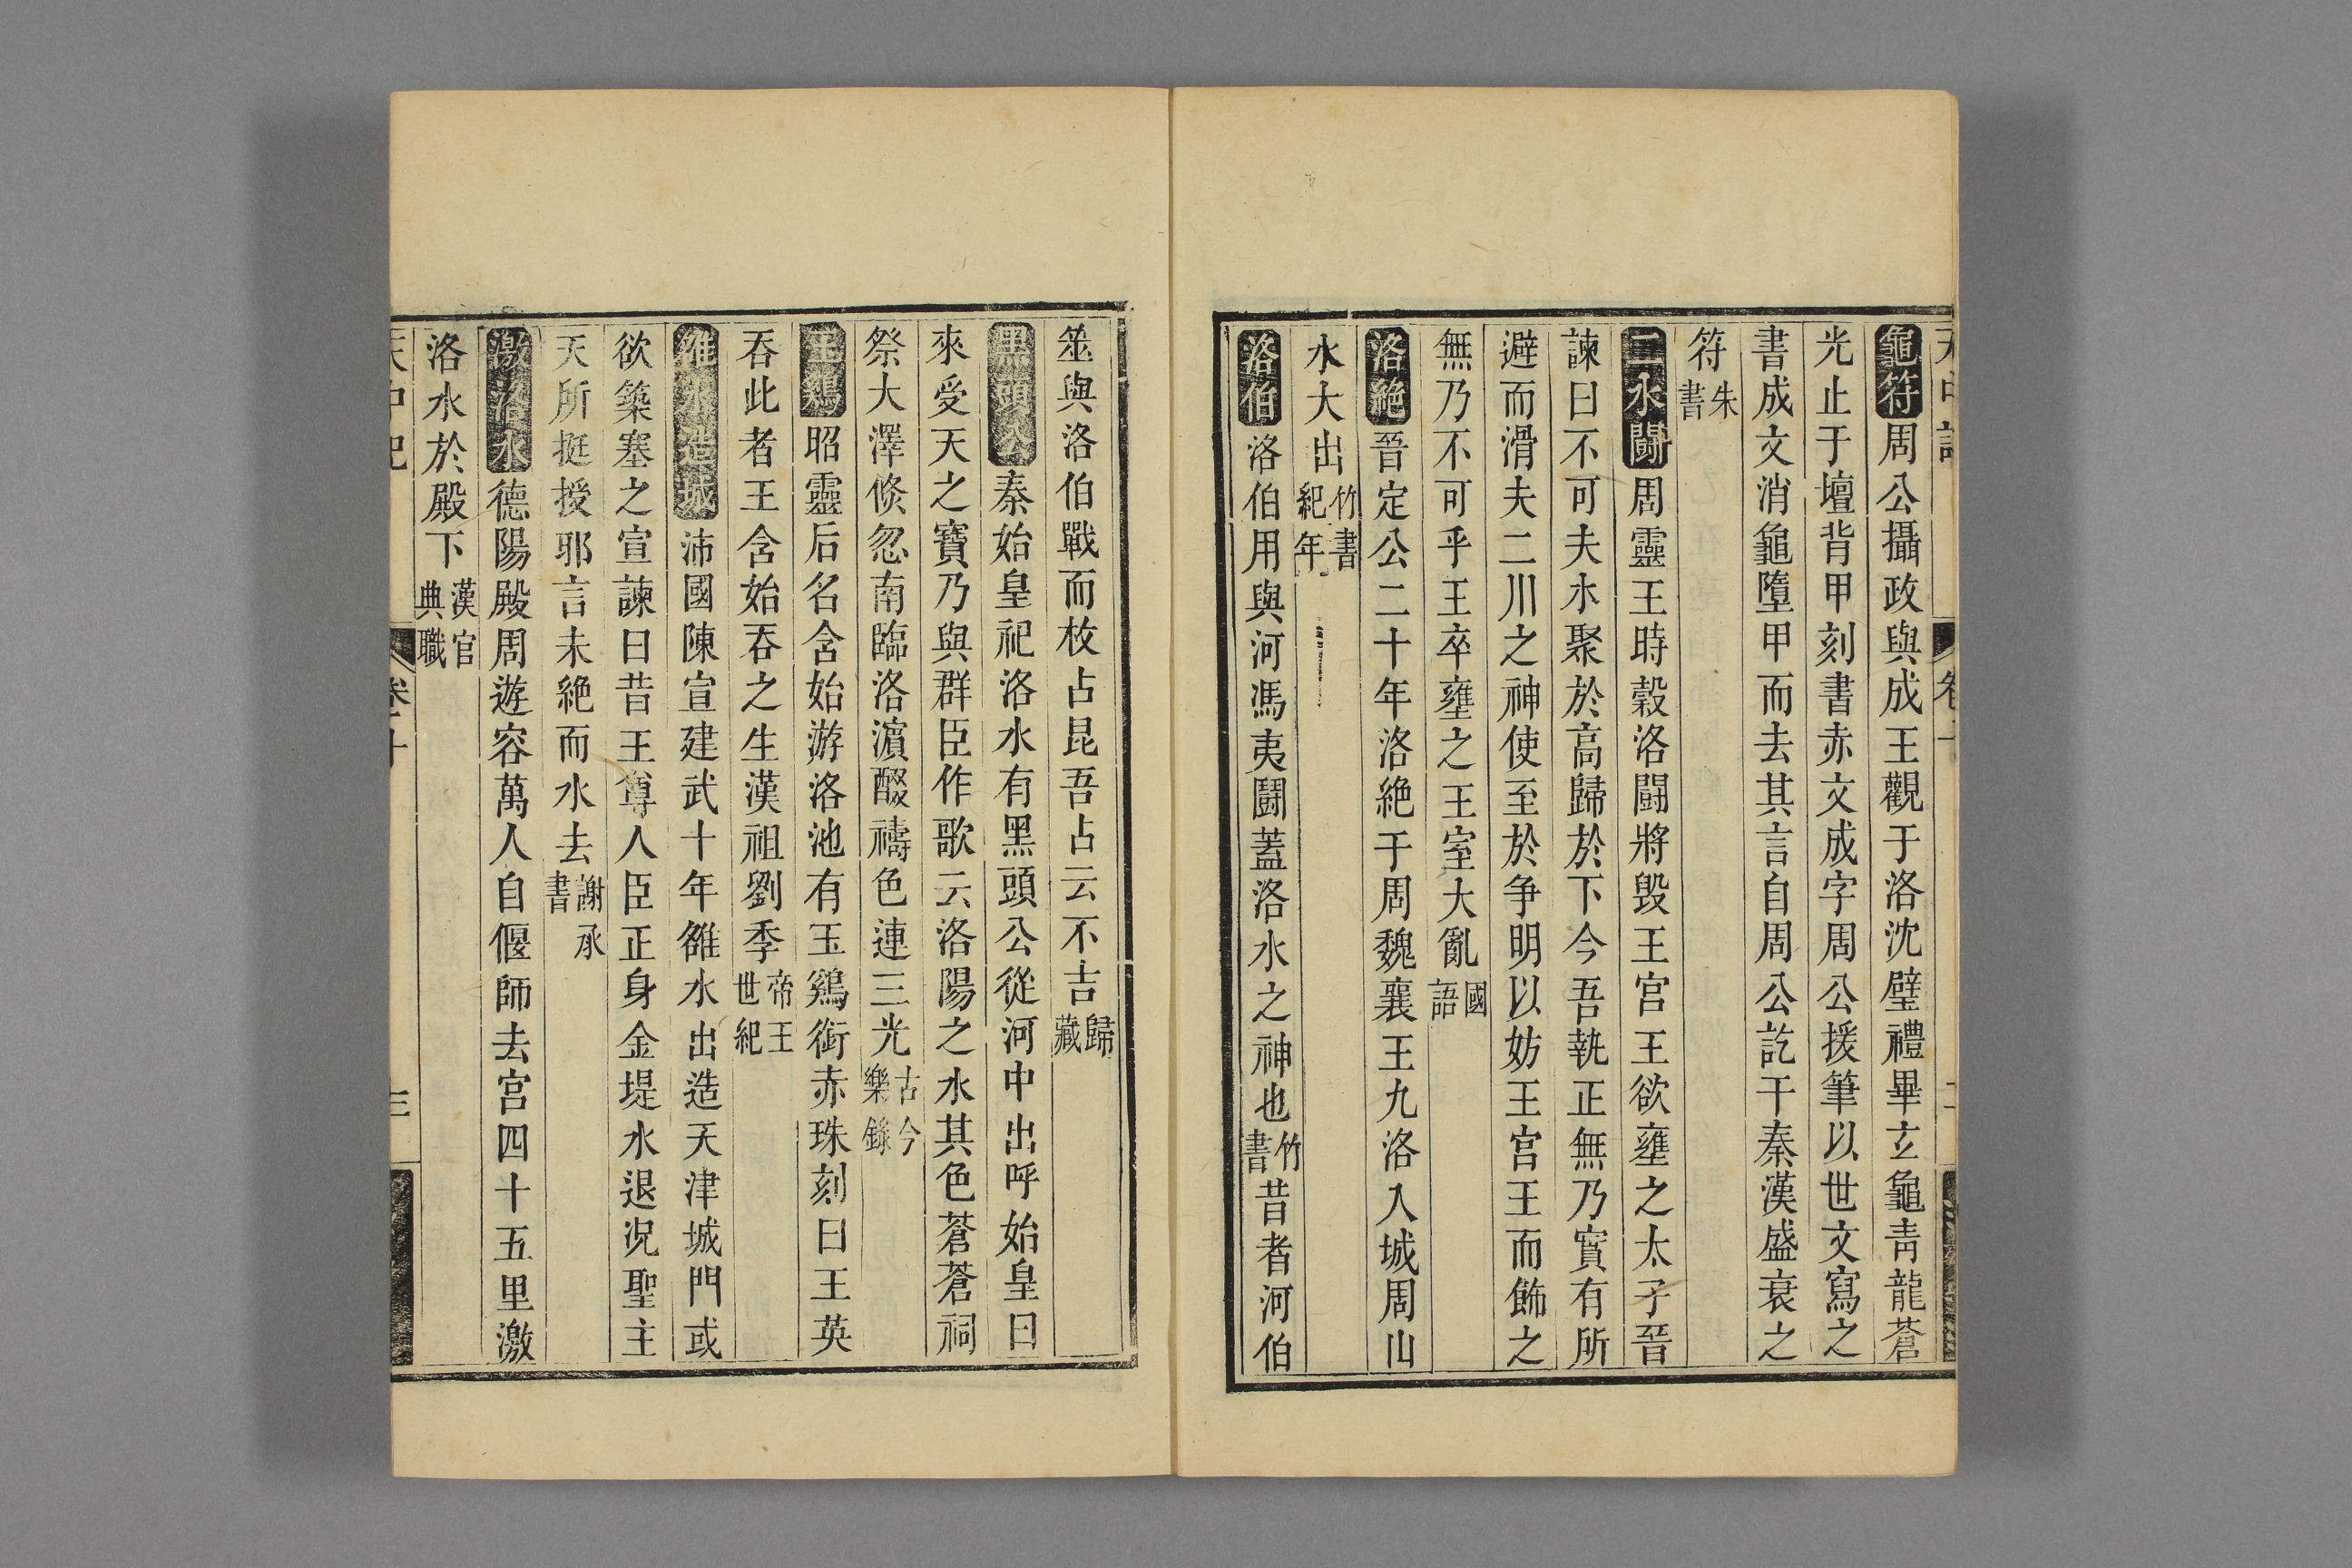 龜符周公攝政與成王觀于洛沈璧禮畢玄龜靑龍蒼
光止于壇背甲刻書赤文成字周公援筆以世文寫之
書成文消龜墮甲而去其言自周公訖于秦漢盛衰之
符朱書
二水鬭周靈王時穀洛鬭將毀王宮王欲壅之太子晉
諫曰不可夫水聚於高歸於下今吾執正無乃實有所
避而滑夫二川之神使至於爭明以妨王宮王而飾之
無乃不可乎王卒壅之王室大亂國語
洛絶晉定公二十年洛絶于周魏襄王九洛入城周山
水大出竹書紀年
洛伯洛伯用與河馮夷鬪蓋洛水之神也竹書昔者河伯
筮與洛伯戰而枚占昆吾占云不吉歸藏
黑頭公秦始皇祀洛水有黑頭公從河中出呼始皇曰
來受天之寶乃與群臣作歌云洛陽之水其色蒼蒼祠
祭大澤倐忽南臨洛濵醊禱色連三光古今樂錄
玉鷄昭靈后名含始游洛池有玉鷄銜赤珠刻曰王英
吞此者王含始吞之生漢祖劉季帝王世紀
雒水造城沛國陳宣建武十年雒水出造天津城門或
欲築塞之宣諫曰昔王尊人臣正身金堤水退况聖主
天所挺授耶言未絶而水去謝承書
激洛水德陽殿周遊容萬人自偃師去宮四十五里激
洛水於殿下漢官典職
天中記
卷十
三